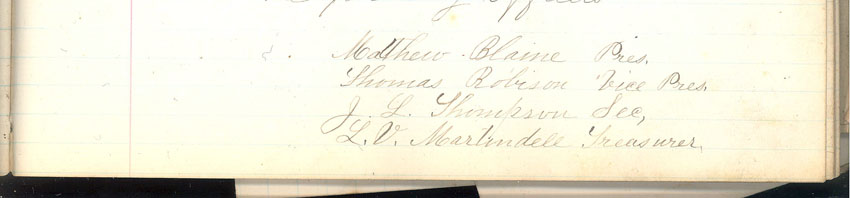 Matthew Blame Pres.
Thomas Robison Vice Pres.
J. L. Thompson Sec,
L. V. Martindell Treasurer,